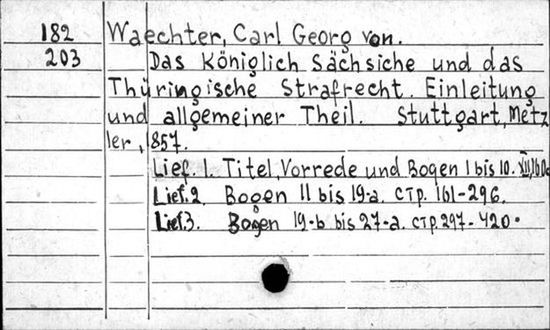 182 Waechter, Carl Georg von.
203 Das Königlich Sächsiche und das
Thüringische Strafrecht. Einleitung
und allgemeiner Theil. Stuttgart, Metz
ler, 857.
Lief. 1. Titel, Vorrede und Bogen 1 bis 10. XII, 160c
Lief. 2. Bogen 11 bis 19-a. стр. 161-296.
Lief. 3. Bogen 19-b bis 27-a. стр. 297-420.